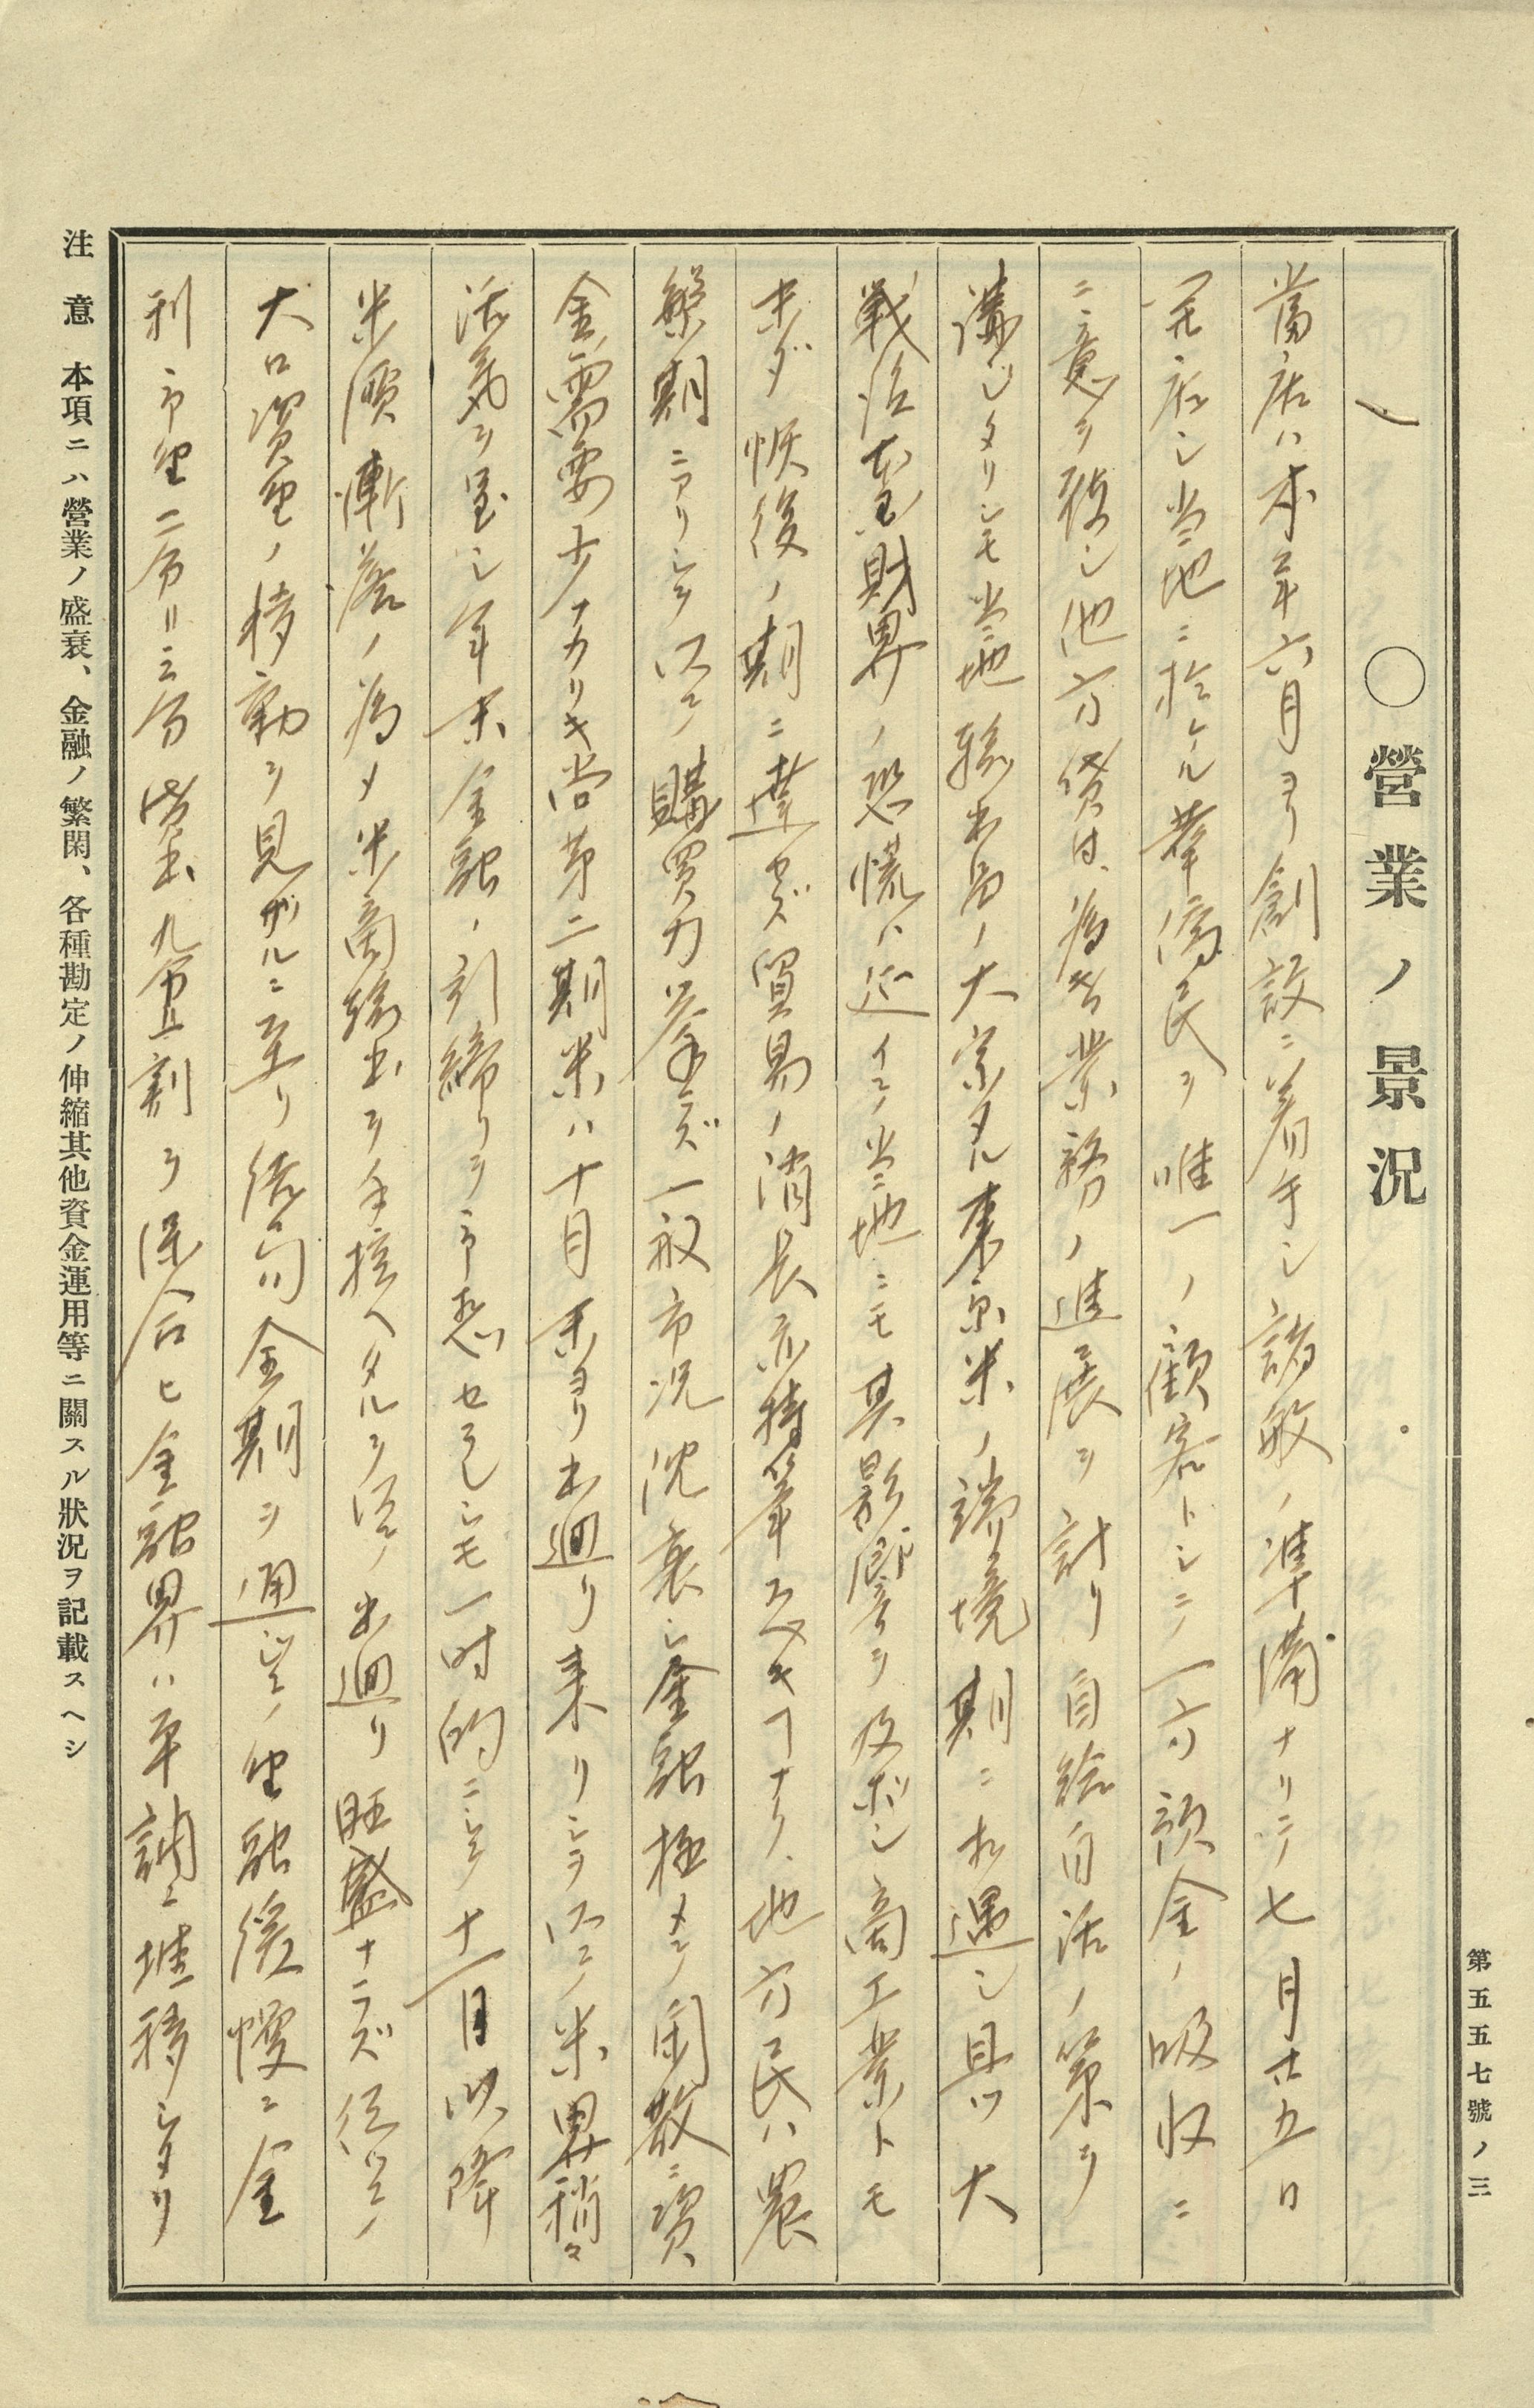 第五五七號ノ三
〇營業ノ景況
一
當店ハ本年六月ヨリ創設ニ着手シ諸般ノ準備ナリテ七月廿五日
開店シ当地ニ於ケル群僑民ヲ唯一ノ顧客トシテ一方預金ノ吸収ニ
ニ意ヲ致シ他方貸付為替業務ノ進展ヲ計リ自給自活ノ策ヲ
講ジタリシモ当地輸出品ノ大宗タル東京米ノ端境期ニ相遇シ且ツ大
戦後 財界ノ恐慌ハ延イテ当地ニモ其影響ヲ及ボシ商工業トモ
未ダ恢復ノ期ニ達セズ貿易ノ消長亦特筆スベキナク地方民ハ農
繁期ニアリシヲ以テ購買力挙ラズ一般市況沈衰シ金融極メテ閑散ニ資
金需要少ナカリキ尚第二期米ハ十月末ヨリ出廻リ来リシヲ以テ米界稍々
活気ヲ呈シ年末金融ノ引締リヲ予想セラレシモ一時的ニシテ十一月以降
米價漸落ノ為メ米商輸出ヲ手控ヘタルヲ以テ出廻リ旺盛ナラズ従ツテ
大口資金ノ移動ヲ見ザルニ至リ結局全期ヲ通ジテ金融緩慢ニ金
利 二分 三分貸出九 割ヲ保合ヒ金融界ハ平調ニ推移シタリ
注意 本項ニハ營業ノ盛衰、金融ノ繁閑、各種勘定ノ伸縮其他資金運用等ニ關スル狀況ヲ記載スヘシ